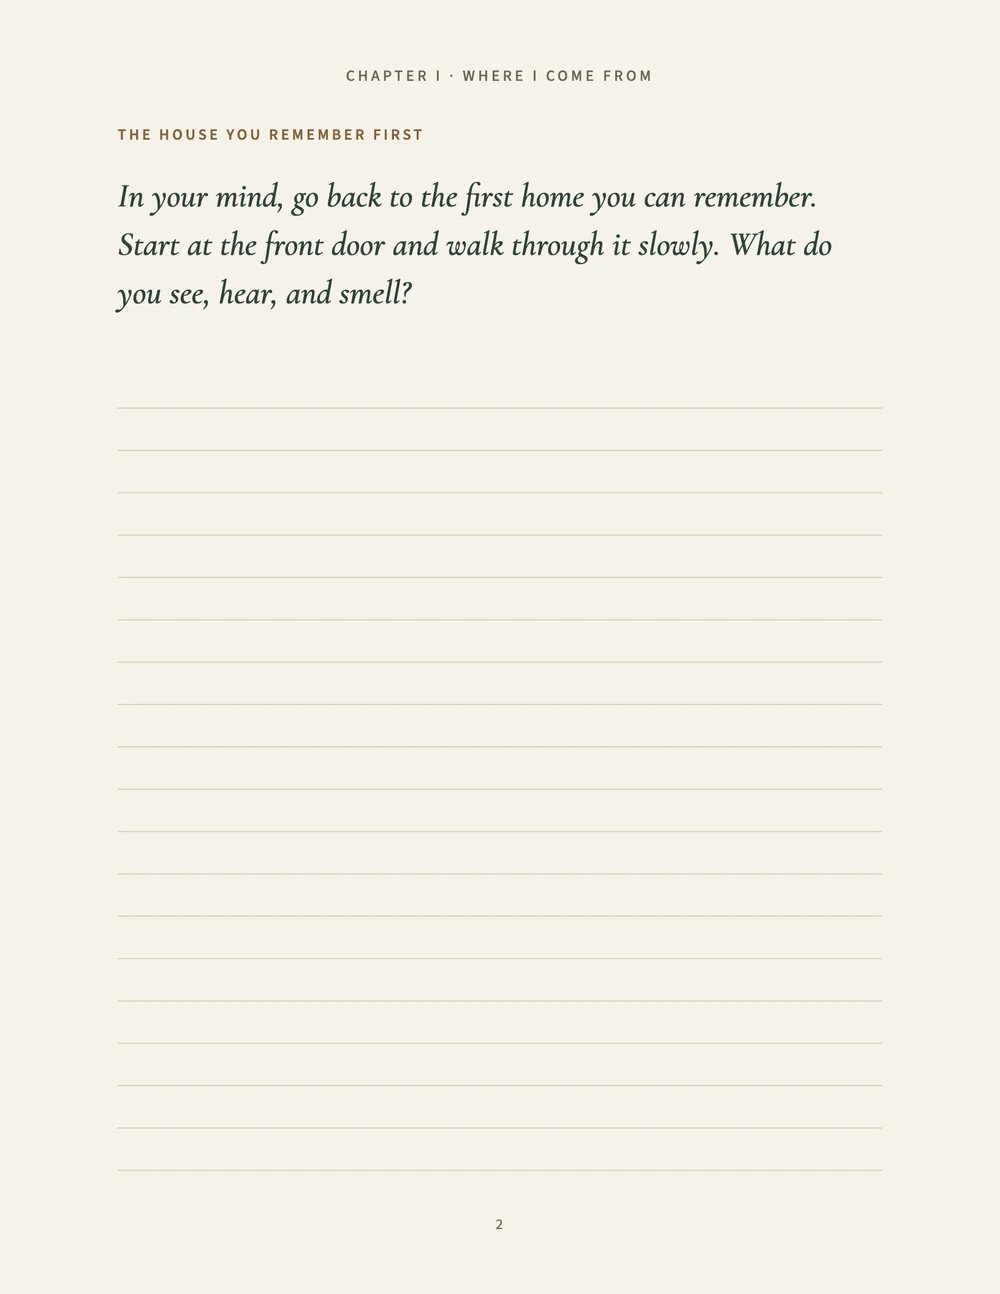 CHAPTER I · WHERE I COME FROM
THE HOUSE YOU REMEMBER FIRST
In your mind, go back to the first home you can remember.
Start at the front door and walk through it slowly. What do
you see, hear, and smell?
2